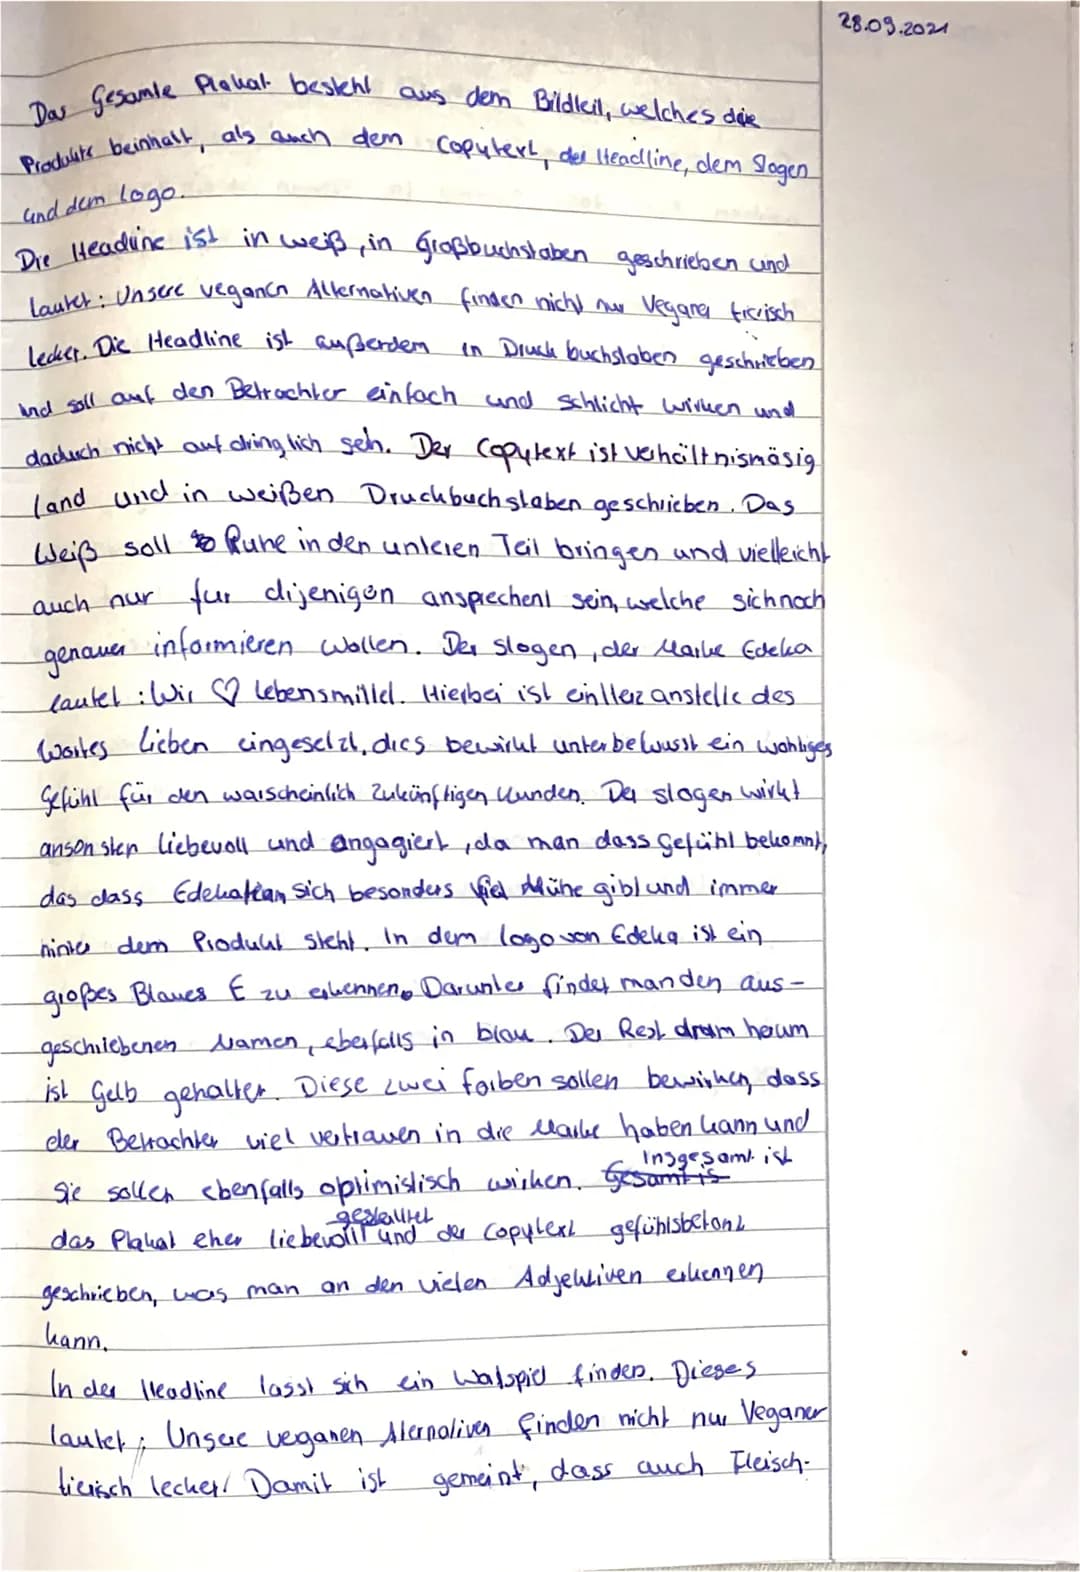 28.09.2021
Das Gesamte Plakat besteht aus dem Bildteil, welches die
Produkte beinhalt, als auch dem Copytext, der Headline, dem Slogen
und dem Logo.
Die Headline ist in weiß, in Großbuchstaben geschrieben und
lautet: Unsere veganen Alternativen finden nicht nur Veganer tierisch
lecker. Die Headline ist außerdem in Druckbuchstaben geschrieben
und soll auf den Betrachter einfach und schlicht wirken und
daduch nicht aufdringlich seh. Der Copytext ist verhältnismäsig
land und in weißen Druckbuchstaben geschrieben. Das
Weiß soll Ruhe in den unteren Teil bringen und vielleicht
auch nur fur dijenigen ansprechent sein, welche sich noch
genauer informieren wollen. Der slogen, der Marke Edeka
lautet: Wir ♡ Lebensmittel. Hierbei ist ein Herz anstelle des
Wortes Lieben eingesetzt, dies bewirkt unterbewusst ein wohliges
Gefühl für den warscheinlich Zukünftigen Kunden. Der slogen wirkt
ansonsten liebevoll und angagiert, da man dass Gefühl bekommt,
das dass Edeka sich besonders viel Mühe gibt und immer
hinter dem Produkt steht. In dem Logo von Edeka ist ein
großes Blaues E zu erkennen. Darunter findet man den aus-
geschriebenen Namen, ebenfalls in blau. Der Rest dram herum
ist Gelb gehalten. Diese zwei farben sollen bewirken, dass
der Betrachter viel vertrauen in die Marke haben kann und
Sie sollen ebenfalls optimistisch wirken. Gesamt is Insgesamt ist
das Plakat eher liebevoll gestalltet und der Copytext gefühlsbetont
geschrieben, was man an den vielen Adjektiven erkennen
kann.
In der Headline lasst sich ein Watspiel finden. Dieses
lautet: Unsere veganen Alernativen finden nicht nur Veganer
tierisch lecker! Damit ist gemeint, dass auch Fleisch-